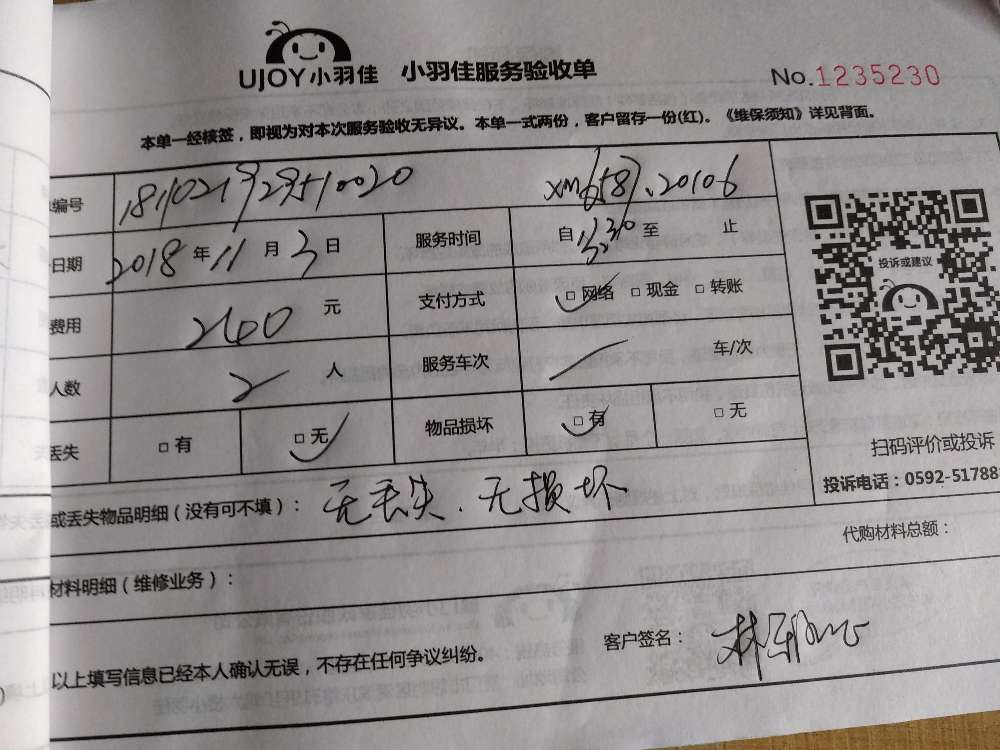 UJOY小羽佳 小羽佳服务验收单 No.1235230
本单一经核签，即视为对本次服务验收无异议。本单一式两份，客户留存一份(红)。《维保须知》详见背面。
编号
日期 2018年11月3日 服务时间 自 至 止
费用 240元 支付方式 □网络 □现金 □转账
人数 2人 服务车次 车/次
丢失 □有 □无 物品损坏 □有 □无
投诉或建议
扫码评价或投诉
投诉电话：0592-51788
或丢失物品明细（没有可不填）： 无丢失.无损坏
代购材料总额：
材料明细（维修业务）：
以上填写信息已经本人确认无误，不存在任何争议纠纷。 客户签名：